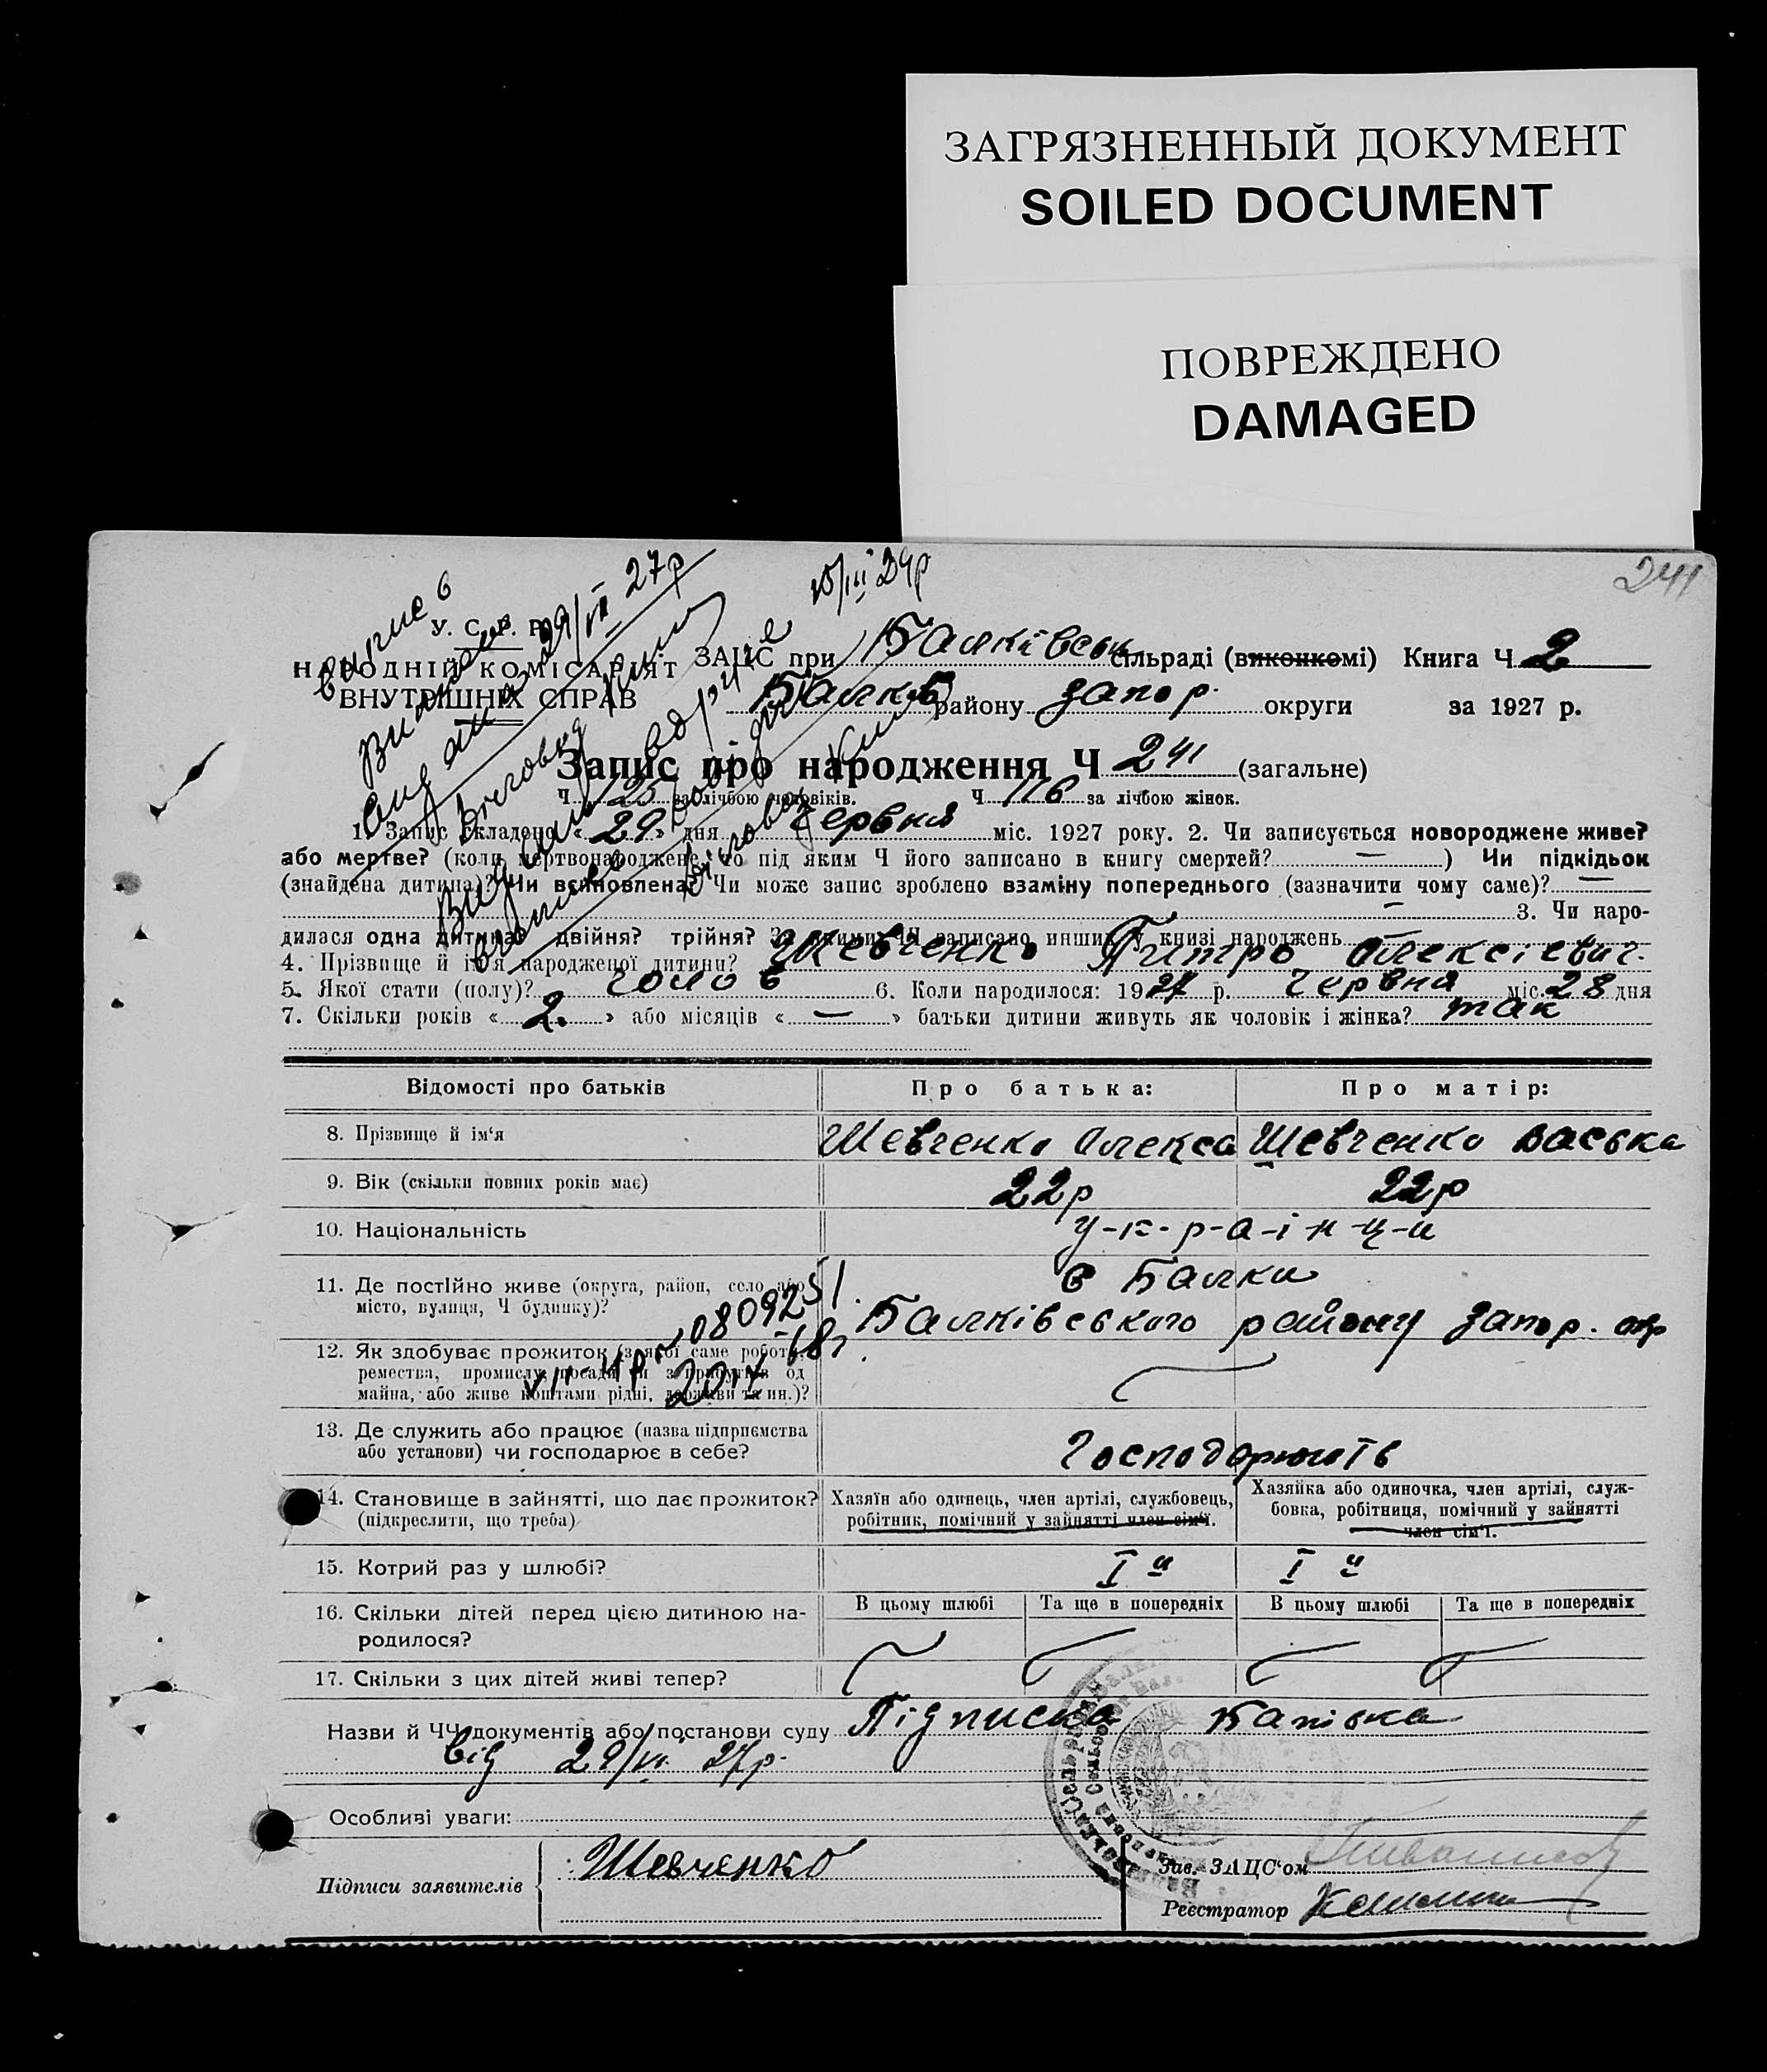 ЗАГРЯЗНЕННЫЙ ДОКУМЕНТ
SOILED DOCUMENT
ПОВРЕЖДЕНО
DAMAGED
241
У. С. Р. Р.
НАРОДНІЙ КОМІСАРІЯТ
ВНУТРІШНІХ СПРАВ
29/VI 27р
10/III 34р
ЗАЦС при Балківськ сільраді (виконкомі) Книга Ч. 2
Балків району Запор. округи за 1927 р.
Запис про народження Ч 241 (загальне)
Ч 125 за лічбою чоловіків. Ч 116 за лічбою жінок.
1. Запис складено « 29 » дня червня міс. 1927 року. 2. Чи записується новороджене живе?
або мертве? (коли мертвонароджене, то під яким Ч його записано в книгу смертей? — ) Чи підкідьок
(знайдена дитина)? Чи всиновлена? Чи може запис зроблено взаміну попереднього (зазначити чому саме)? —
— 3. Чи наро-
дилася одна дитина? двійня? трійня? За якими ЧЧ записано инших у книзі народжень —
4. Прізвище й ім'я народженої дитини? Шевченко Питро Олексієвич.
5. Якої стати (полу)? чолов 6. Коли народилося: 1927 р. червня міс. 28 дня
7. Скільки років « 2. » або місяців « — » батьки дитини живуть як чоловік і жінка? так
Відомості про батьків Про батька: Про матір:
8. Прізвище й ім'я Шевченко Олекса Шевченко Васька
9. Вік (скільки повних років має) 22р 22р
10. Національність у-к-р-а-ї-н-ц-и
11. Де постійно живе (округа, район, село або с Балки
місто, вулиця, Ч будинку)? Балківського району Запор. окр
12. Як здобуває прожиток (з якої саме роботи,
ремества, промислу, посади чи з прибутків од
майна, або живе коштами рідні, держави та ин.)?
13. Де служить або працює (назва підприємства
або установи) чи господарює в себе? Господарюють
14. Становище в зайнятті, що дає прожиток? Хазяїн або одинець, член артілі, службовець, Хазяйка або одиночка, член артілі, служ-
(підкреслити, що треба) робітник, помічний у зайнятті член сім'ї. бовка, робітниця, помічний у зайнятті
член сім'ї.
15. Котрий раз у шлюбі? I й I й
16. Скільки дітей перед цією дитиною на- В цьому шлюбі Та ще в попередніх В цьому шлюбі Та ще в попередніх
родилося?
17. Скільки з цих дітей живі тепер?
Назви й ЧЧ документів або постанови суду Підписка
від 29/VI 27р.
Особливі уваги:
Підписи заявителів Шевченко Зав. ЗАЦС'ом
Реєстратор